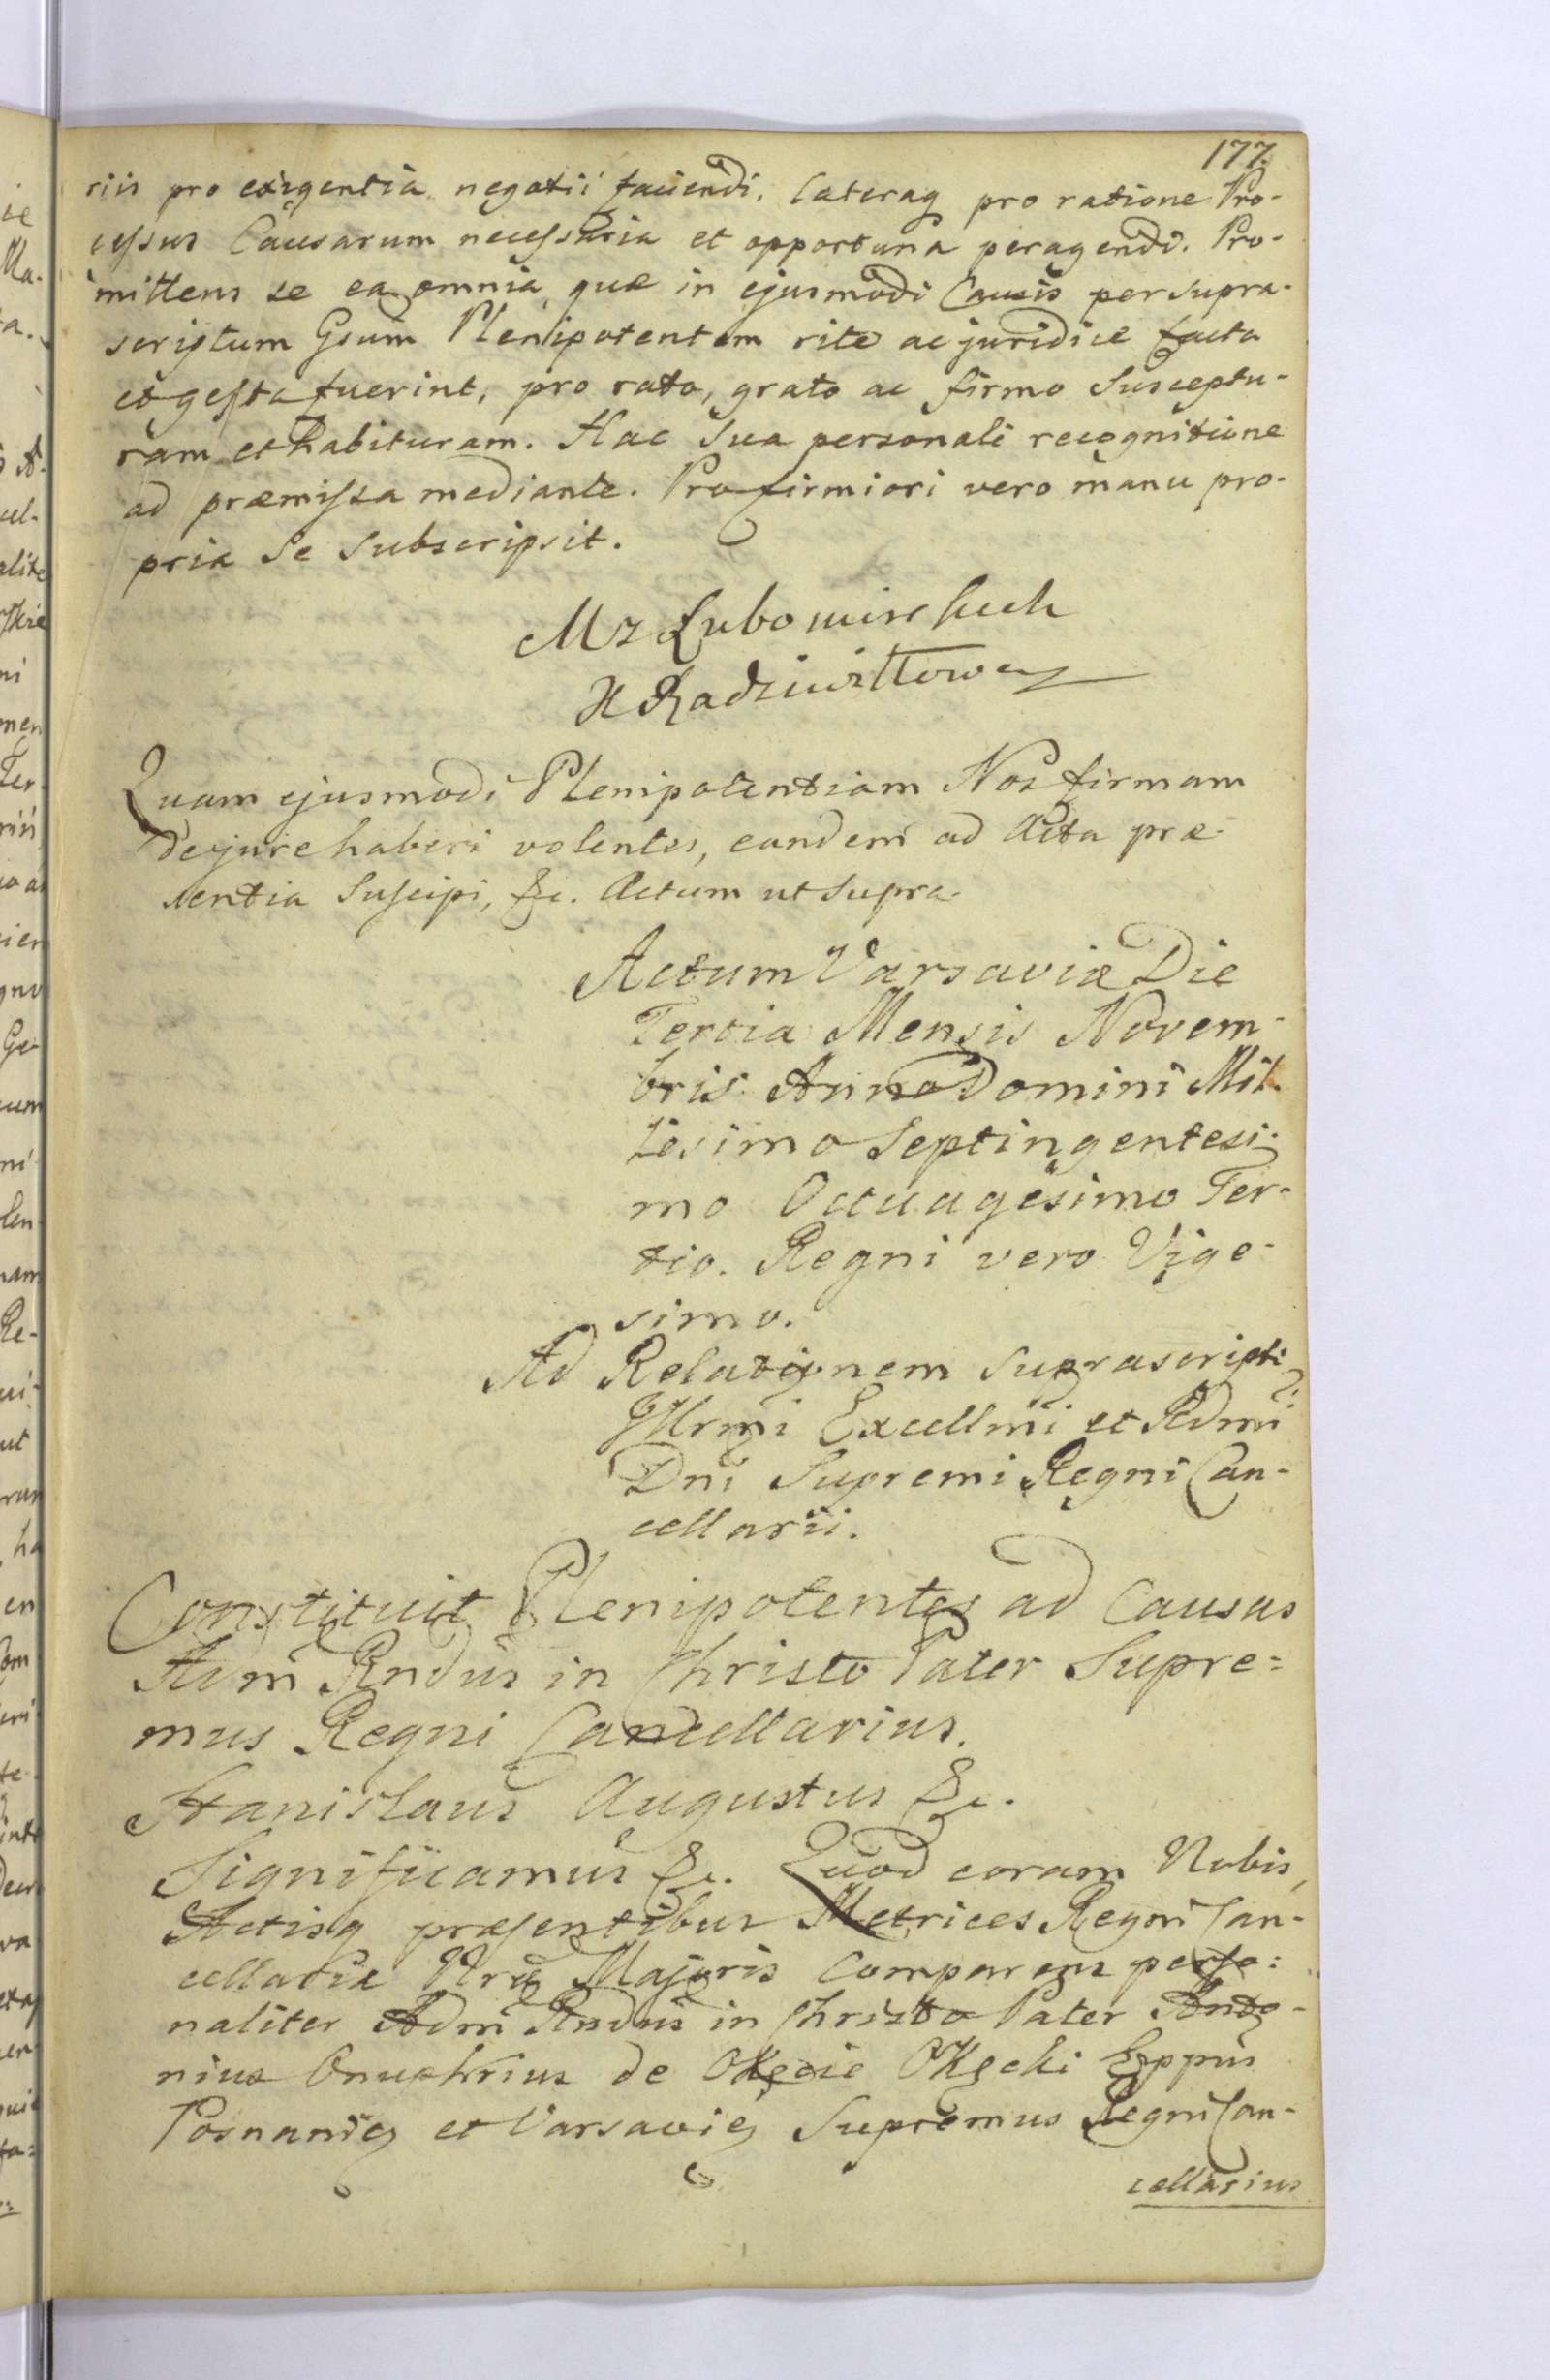 177.
riis pro exigentia negotii faciendi. Caeteraq pro ratione Pro-
cessus Causarum necessaria et opportuna peragendi. Pro-
mittens se ea omnia quæ in ejusmodi Causis per supra-
scriptum Gsum Plenipotentem rite ac juridice facta
et gesta fuerint, pro rato, grato ac firmo Susceptu-
ram et habituram. Hac Sua personali recognitione
ad præmissa mediante. Pro firmiori vero manu pro-
pria Se Subscripsit.
M z Lubomirskich
X Radziwiłłowa
Quam ejusmodi Plenipotentiam Nos firmam
de jure haberi volentes, eandem ad Acta præ-
sentia Suscipi, &c. Actum ut Supra
Actum Varsaviæ Die
Tertia Mensis Novem-
bris Anno Domini Mil-
lesimo Septingentesi-
mo Octuagesimo Ter-
tio. Regni vero Vige-
simo.
Ad Relationem Suprascripti
Illrmi Excellmi et Rdmi
Dni Supremi Regni Can-
cellarii.
Constituit Plenipotentes ad Causas
Adm Rndus in Christo Pater Supre=
mus Regni Cancellarius.
Stanislaus Augustus &c.
Significamus &c. Quod coram Nobis,
Actisq præsentibus Metrices Regni Can-
cellariæ Nræ Majoris Comparens perso:
naliter Adm Rndus in Christo Pater Anto-
nius Onuphrius de Okęcie Okęcki Eppus
Posnanię et Varsavię Supremus Regni Can-
cellarius